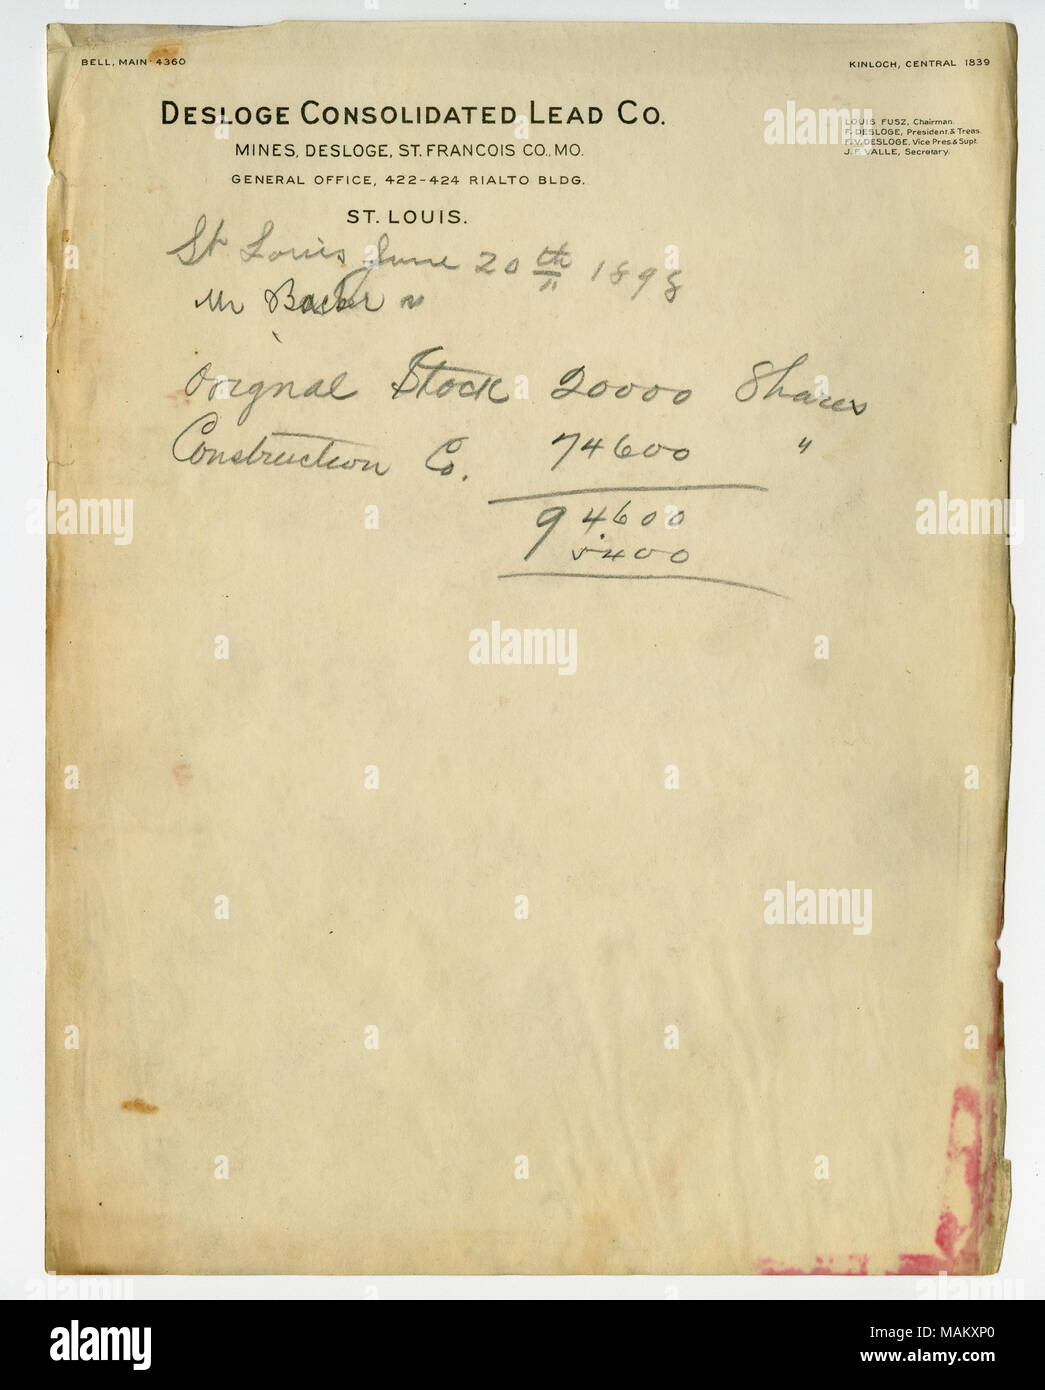 BELL, MAIN 4360
KINLOCH, CENTRAL 1839
DESLOGE CONSOLIDATED LEAD CO.
MINES, DESLOGE, ST. FRANCOIS CO., MO.
GENERAL OFFICE, 422-424 RIALTO BLDG.
ST. LOUIS.
LOUIS FUSZ, Chairman.
F. DESLOGE, President & Treas.
F.V. DESLOGE, Vice Pres. & Supt.
J. F. VALLE, Secretary.
St Louis June 20th 1898
Mr
Orignal Stock 20000 Shares
Construction Co. 74600 "
94600
5400
alamy
Image ID: MAKXP0
www.alamy.com